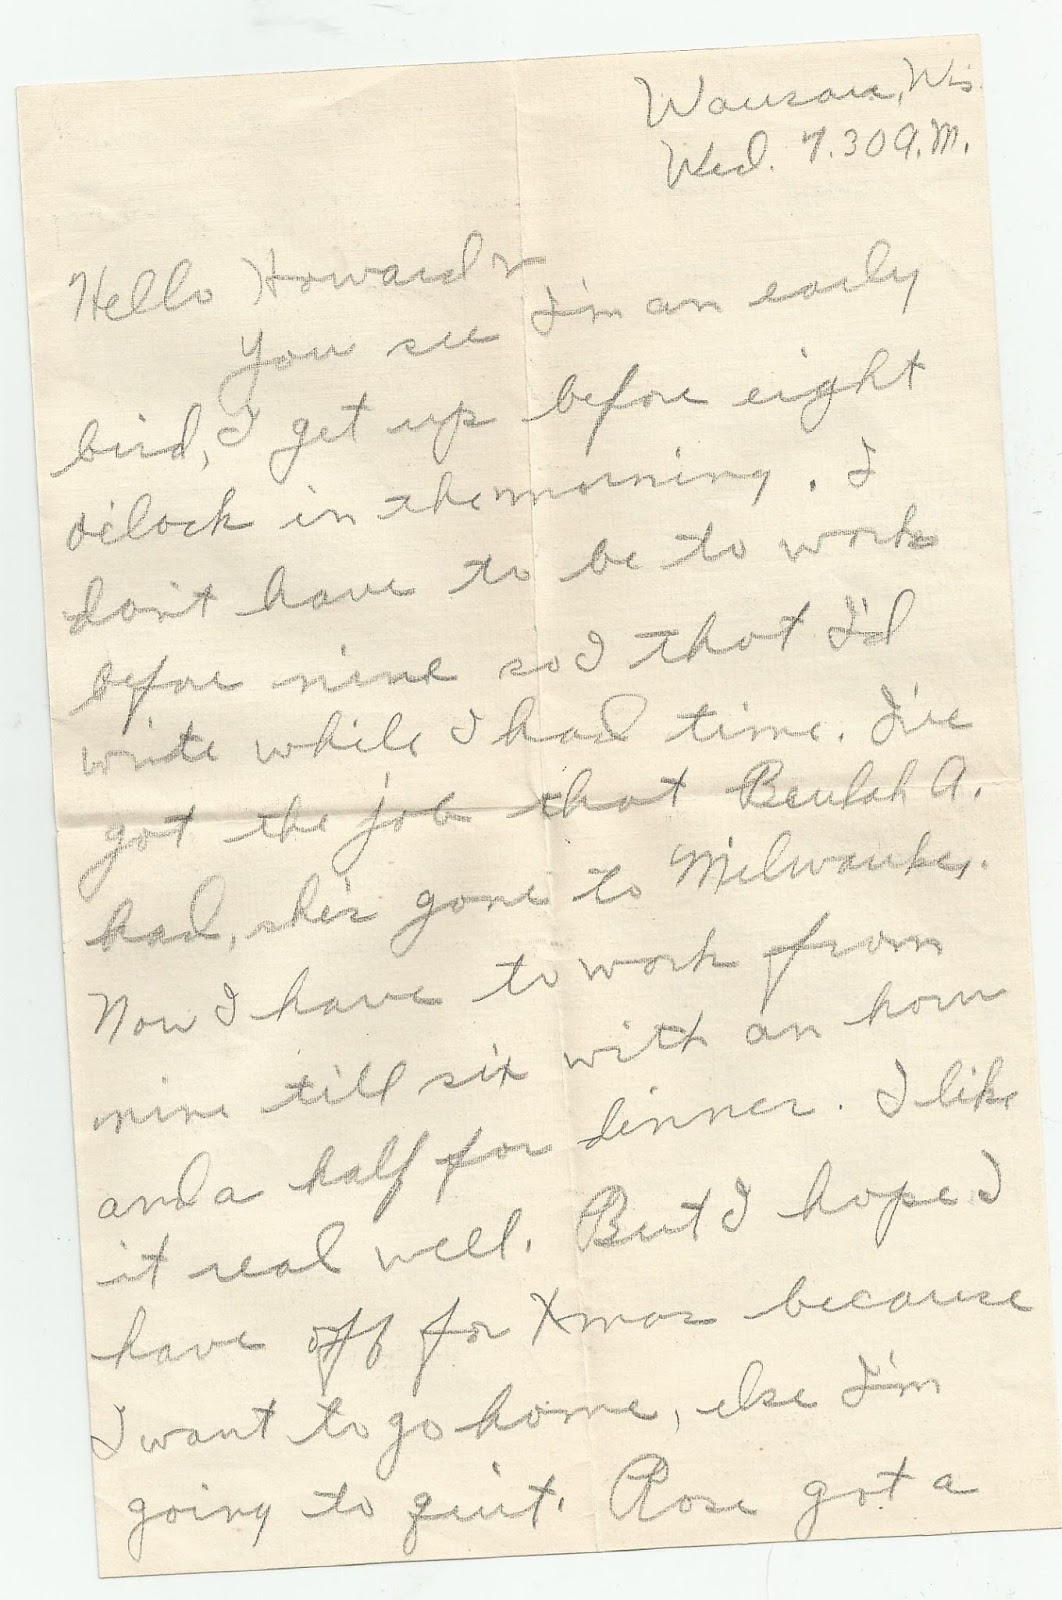 Wausau, Wis.
Wed. 7.30 A.M.
Hello Howard
You see I'm an early
bird, I get up before eight
o'clock in the morning. I
don't have to be to work
before nine so I that I'd
write while I had time. I've
got the job that Beulah A.
had, she's gone to Milwaukey.
Now I have to work from
nine till six with an hour
and a half for dinner. I like
it real well. But I hope I
have off for Xmas because
I want to go home, else I'm
going to quit. Rose got a